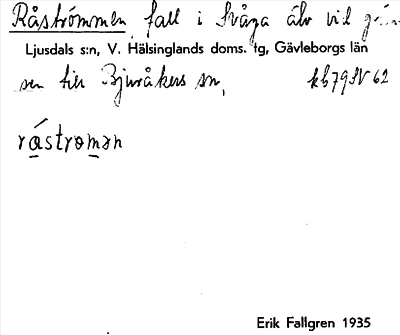 Råströmmen, fall i Svåga älv vid grän-
Ljusdals s:n, V. Hälsinglands doms. tg, Gävleborgs län
sen till Bjuråkers sn, kb79SV62
råstroman
Erik Fallgren 1935